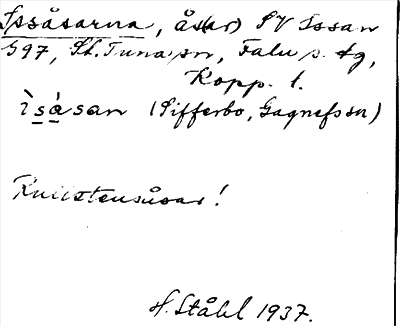 Issåsarna, ås(ar) SV Issan
597, St. Tuna sn, Falu s. tg,
Kopp. l.
ìsàsan (Sifferbo, Gagnefs sn)
Rullstensåsar!
H. Ståhl 1937.